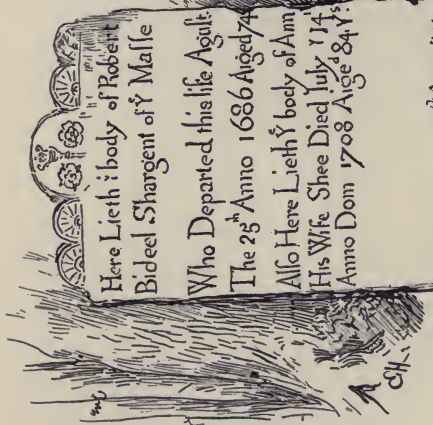 Here Lieth ẙ body of Robert
Bideel Shargent of Ẏ Masse
Who Departed this life Agust
The 25th Anno 1686 Aiged 74
Allso Here Lieth ẙ body of Ann
His Wife Shee Died July ẙ 14
Anno Dom 1708 Aiged 84 Yrs
CH.